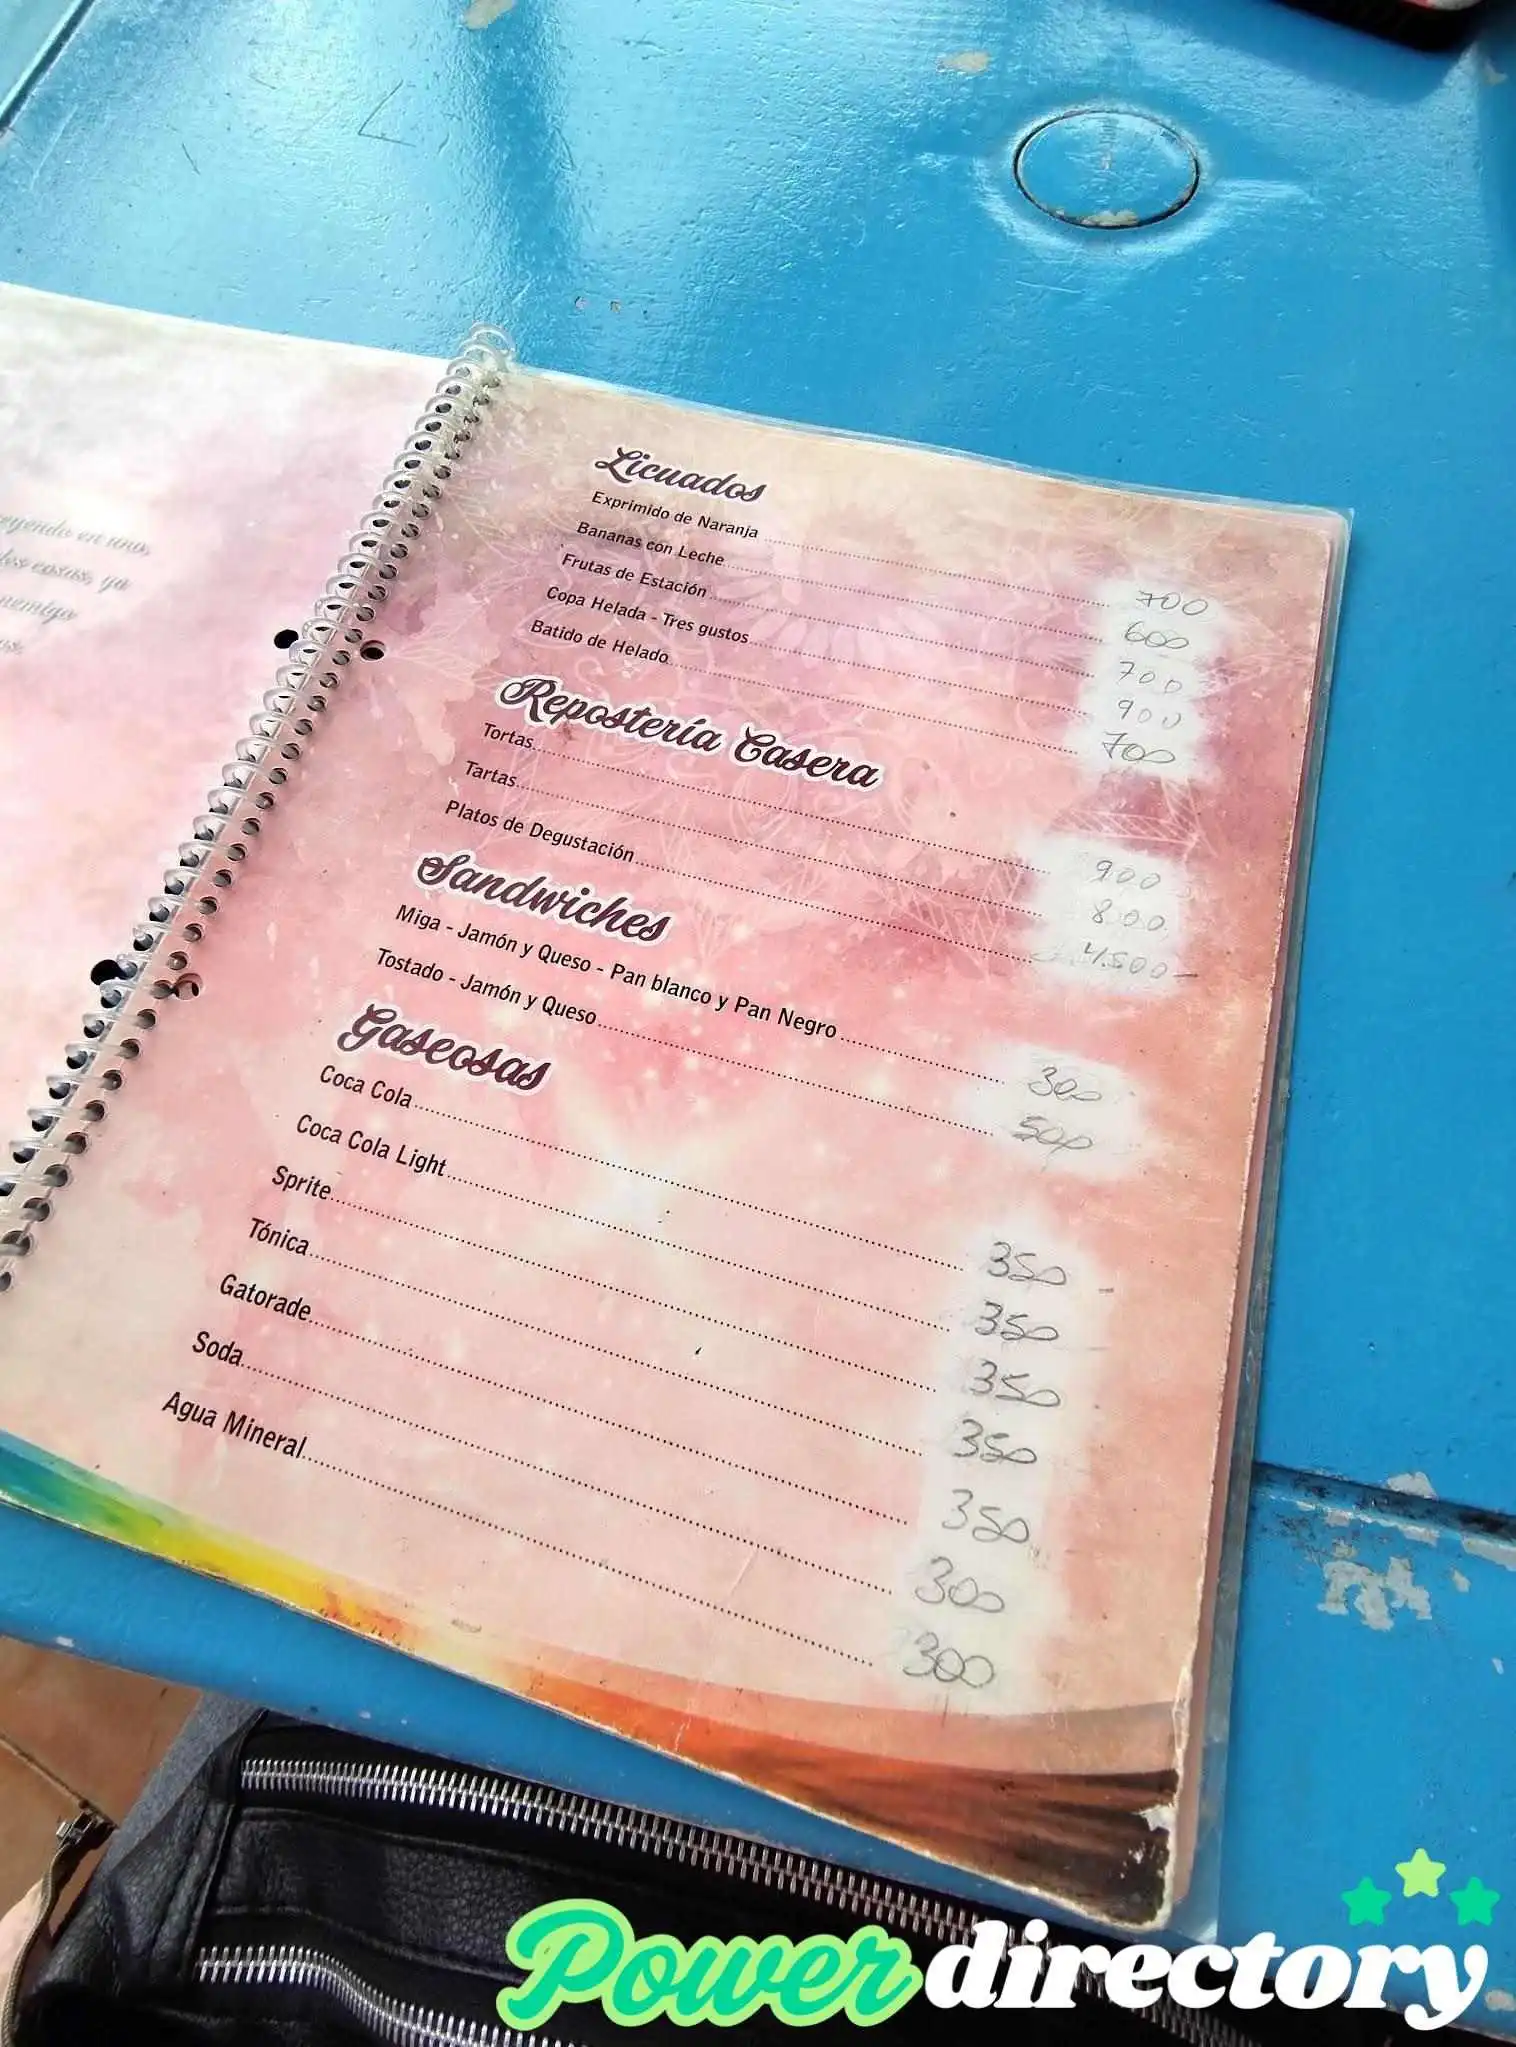 Licuados
Exprimido de Naranja 700
Bananas con Leche 600
Frutas de Estación 700
Copa Helada - Tres gustos 900
Batido de Helado 700
Repostería Casera
Tortas 900
Tartas 800
Platos de Degustación 4.500-
Sandwiches
Miga - Jamón y Queso - Pan blanco y Pan Negro 300
Tostado - Jamón y Queso 500
Gaseosas
Coca Cola 350
Coca Cola Light 350
Sprite 350
Tónica 350
Gatorade 350
Soda 300
Agua Mineral 300
en uno,
cosas, yo
Powerdirectory